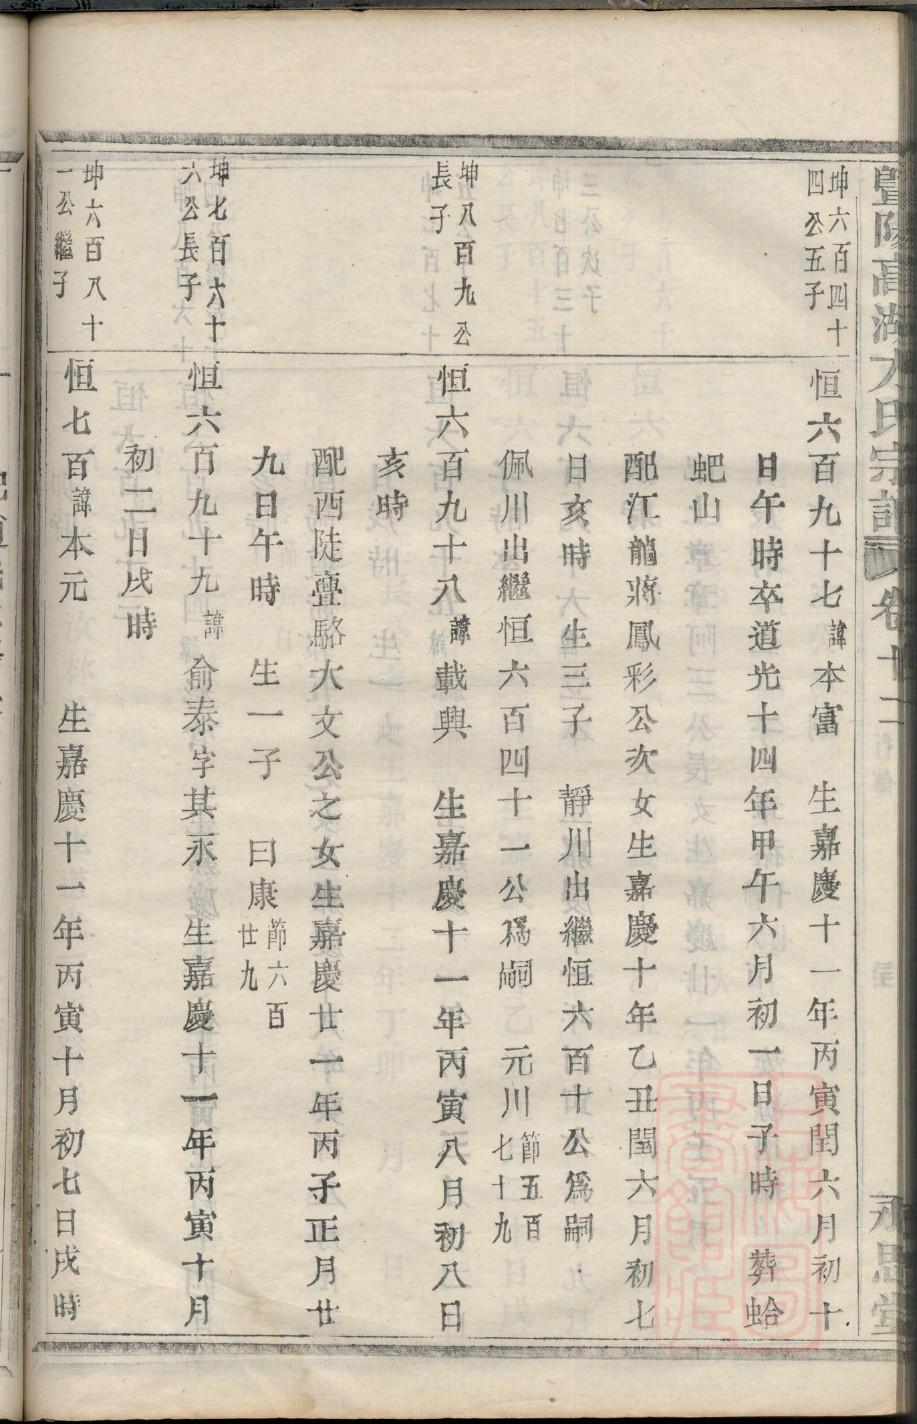 暨陽高湖水氏宗譜 卷十二 永思堂
坤六百四十
四公五子
恒六百九十七諱本富 生嘉慶十一年丙寅閏六月初十
日午時卒道光十四年甲午六月初一日子時 葬蛤
蚆山
配江龍蔣鳳彩公次女生嘉慶十年乙丑閏六月初七
日亥時 生三子 靜川出繼恒六百十公爲嗣
佩川出繼恒六百四十一公爲嗣 元川節五百七十九
坤八百九公
長子
恒六百九十八諱載興 生嘉慶十一年丙寅八月初八日
亥時
配西陡亹駱大文公之女生嘉慶廿一年丙子正月廿
九日午時 生一子 曰康節六百廿九
坤七百六十
六公長子
恒六百九十九諱俞泰字其永 生嘉慶十一年丙寅十月
初二日戌時
坤六百八十
一公繼子
恒七百諱本元 生嘉慶十一年丙寅十月初七日戌時